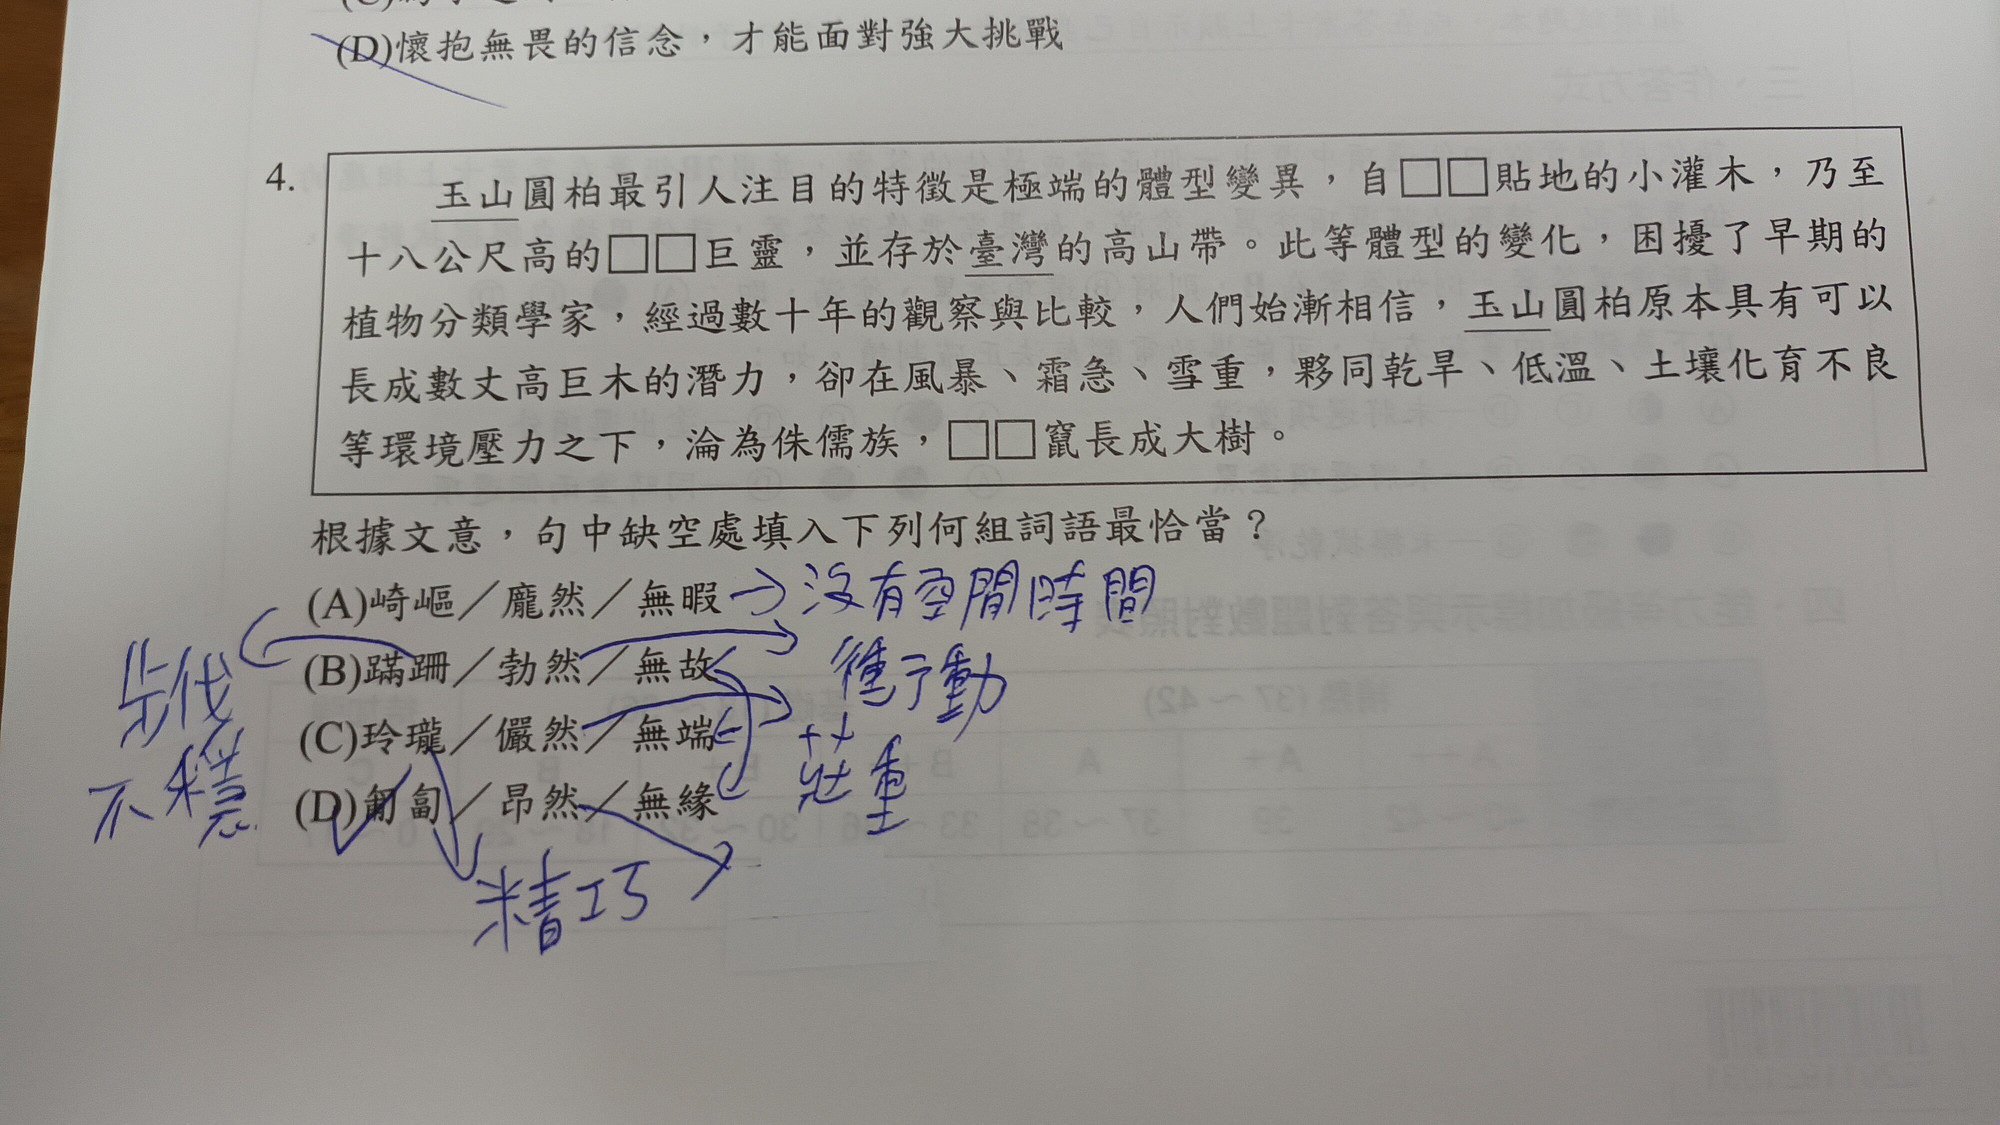 (D)懷抱無畏的信念，才能面對強大挑戰
4.
玉山圓柏最引人注目的特徵是極端的體型變異，自□□貼地的小灌木，乃至
十八公尺高的□□巨靈，並存於臺灣的高山帶。此等體型的變化，困擾了早期的
植物分類學家，經過數十年的觀察與比較，人們始漸相信，玉山圓柏原本具有可以
長成數丈高巨木的潛力，卻在風暴、霜急、雪重，夥同乾旱、低溫、土壤化育不良
等環境壓力之下，淪為侏儒族，□□竄長成大樹。
根據文意，句中缺空處填入下列何組詞語最恰當？
(A)崎嶇／龐然／無暇
沒有空間時間
(B)蹣跚／勃然／無故
步伐
不穩
衝動
(C)玲瓏／儼然／無端
莊重
(D)匍匐／昂然／無緣
精巧